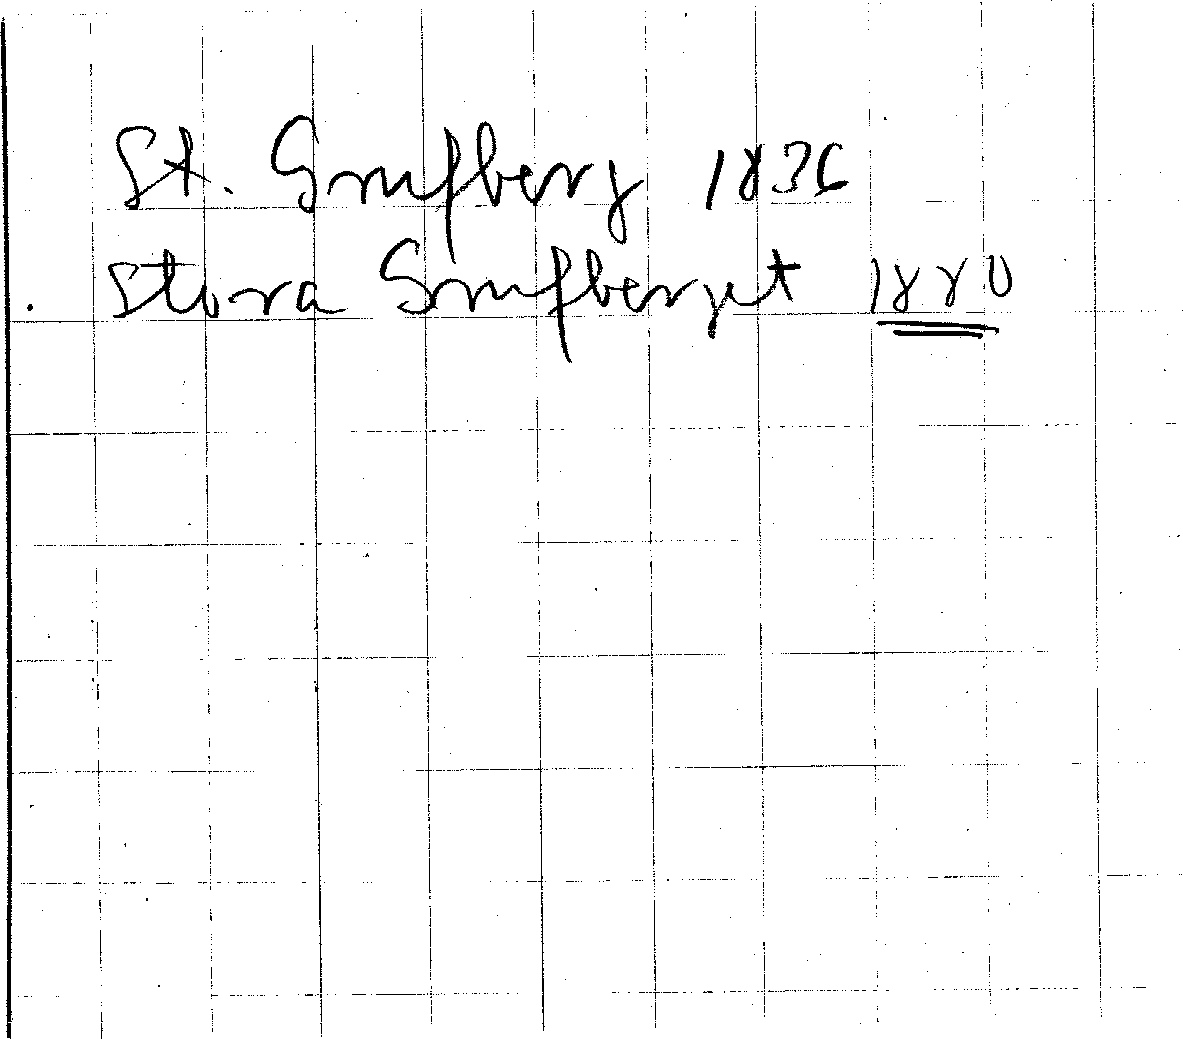 St. Grufberg 1836
Stora Grufberget 1880